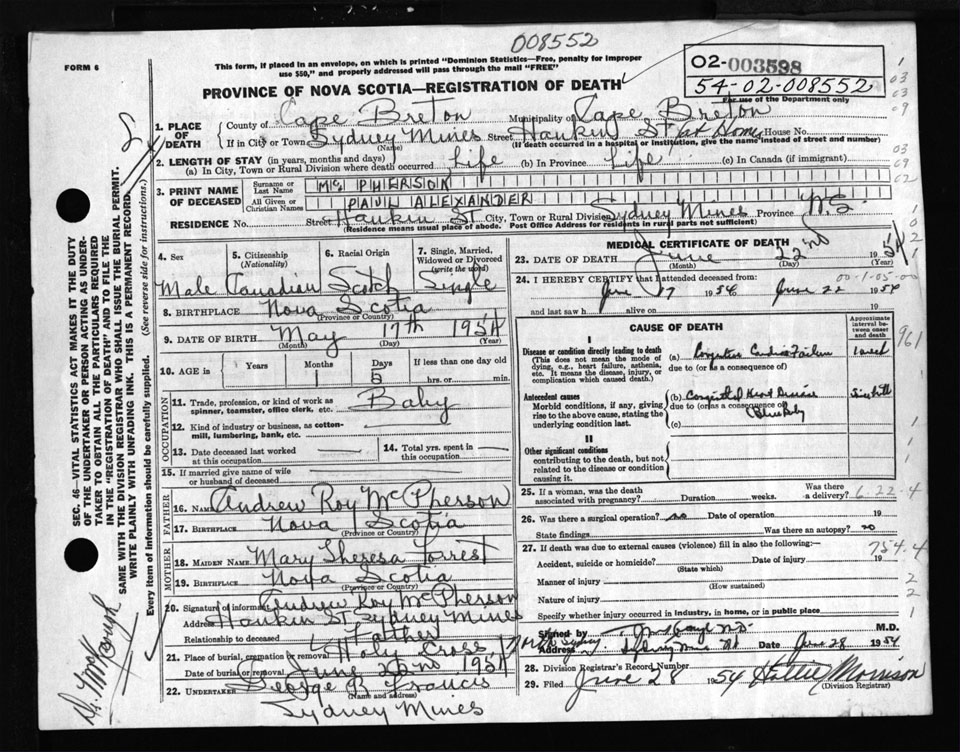 008552
FORM 6
This form, if placed in an envelope, on which is printed "Dominion Statistics—Free, penalty for improper
use $50," and properly addressed will pass through the mail "FREE"
02-003598
54-02-008552
For use of the Department only
PROVINCE OF NOVA SCOTIA—REGISTRATION OF DEATH
1. PLACE OF DEATH
County of Cape Breton Municipality of Cape Breton
If in City or Town Sydney Mines Street Hankin St at Home House No.
(Name) (If death occurred in a hospital or institution, give the name instead of street and number)
2. LENGTH OF STAY (in years, months and days)
(a) In City, Town or Rural Division where death occurred Life (b) In Province Life (c) In Canada (if immigrant)
3. PRINT NAME OF DECEASED
Surname or Last Name Mc PHERSON
All Given or Christian Names PAUL ALEXANDER
RESIDENCE No. Street Hankin St City, Town or Rural Division Sydney Mines Province N.S.
(Residence means usual place of abode. Post Office Address for residents in rural parts not sufficient)
4. Sex Male
5. Citizenship (Nationality) Canadian
6. Racial Origin Scotch
7. Single, Married, Widowed or Divorced (write the word) Single
8. BIRTHPLACE Nova Scotia
(Province or Country)
9. DATE OF BIRTH May 17th 1954
(Month) (Day) (Year)
10. AGE in Years Months 1 Days 5 If less than one day old hrs. or min.
OCCUPATION
11. Trade, profession, or kind of work as spinner, teamster, office clerk, etc. Baby
12. Kind of industry or business, as cotton-mill, lumbering, bank, etc.
13. Date deceased last worked at this occupation
14. Total yrs. spent in this occupation
15. If married give name of wife or husband of deceased
FATHER
16. NAME Andrew Roy McPherson
17. BIRTHPLACE Nova Scotia
(Province or Country)
MOTHER
18. MAIDEN NAME Mary Theresa Forrest
19. BIRTHPLACE Nova Scotia
(Province or Country)
20. Signature of informant Andrew Roy McPherson
Address Hankin St Sydney Mines
Relationship to deceased Father
21. Place of burial, cremation or removal Holy Cross
Date of burial or removal June 22nd 1954
22. UNDERTAKER George R Francis
(Name and address)
Sydney Mines
MEDICAL CERTIFICATE OF DEATH
23. DATE OF DEATH June 22nd 1954
(Month) (Day) (Year)
24. I HEREBY CERTIFY that I attended deceased from:
00-1-05-00
June 17 1954 June 22 1954
and last saw h alive on 19
CAUSE OF DEATH
Approximate interval between onset and death
I
Disease or condition directly leading to death
(This does not mean the mode of dying, e.g., heart failure, asthenia, etc. It means the disease, injury, or complication which caused death.)
(a) Congestive Cardiac Failure 1 week
due to (or as a consequence of)
Antecedent causes
Morbid conditions, if any, giving rise to the above cause, stating the underlying condition last.
(b) Congenital Heart Disease Since birth
due to (or as a consequence of)
Blue Baby
(c)
II
Other significant conditions
contributing to the death, but not related to the disease or condition causing it.
25. If a woman, was the death associated with pregnancy? Duration weeks. Was there a delivery?
6.22.4
26. Was there a surgical operation? no Date of operation 19
State findings Was there an autopsy? no
27. If death was due to external causes (violence) fill in also the following:—
754.4
Accident, suicide or homicide? Date of injury 19
(State which)
Manner of injury
(How sustained)
Nature of injury
Specify whether injury occurred in industry, in home, or in public place
Signed by M.D.
Address Sydney Mines NS Date June 28 1954
28. Division Registrar's Record Number
29. Filed June 28 1954 Hattie Morrison
(Division Registrar)
SEC. 46—VITAL STATISTICS ACT MAKES IT THE DUTY
OF THE UNDERTAKER OR PERSON ACTING AS UNDER-
TAKER TO OBTAIN ALL THE PARTICULARS REQUIRED
IN THE "REGISTRATION OF DEATH" AND TO FILE THE
SAME WITH THE DIVISION REGISTRAR WHO SHALL ISSUE THE BURIAL PERMIT.
WRITE PLAINLY WITH UNFADING INK. THIS IS A PERMANENT RECORD.
Every item of information should be carefully supplied. (See reverse side for instructions.)
961